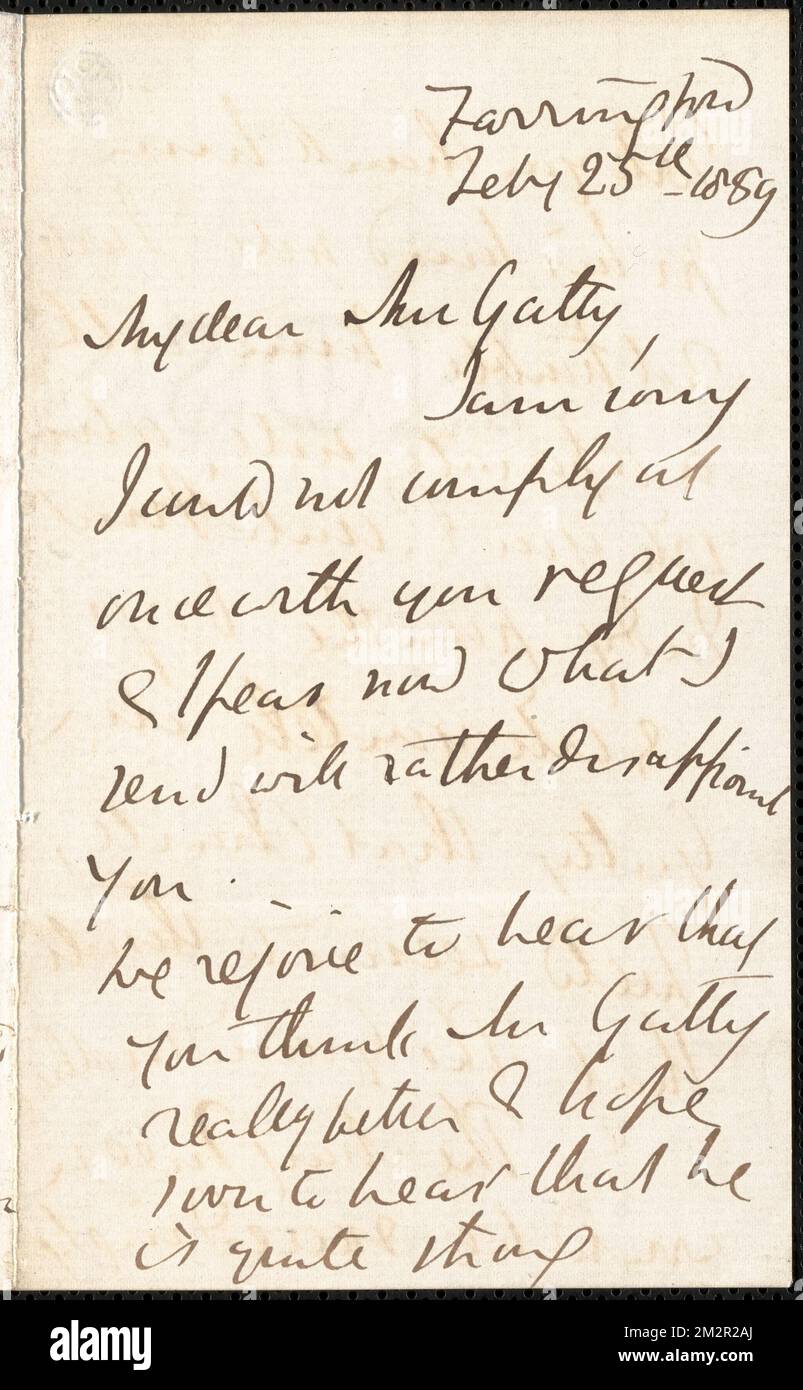 Farringford
Feby 25th - 1889
My dear Mrs Gatty,
I am sorry
I could not comply at
once with your request
& I fear now what I
send will rather disappoint
you.
We rejoice to hear that
you think Mr Gatty
really better & hope
soon to hear that he
is quite strong
alamy
Image ID: 2M2R2AJ
www.alamy.com